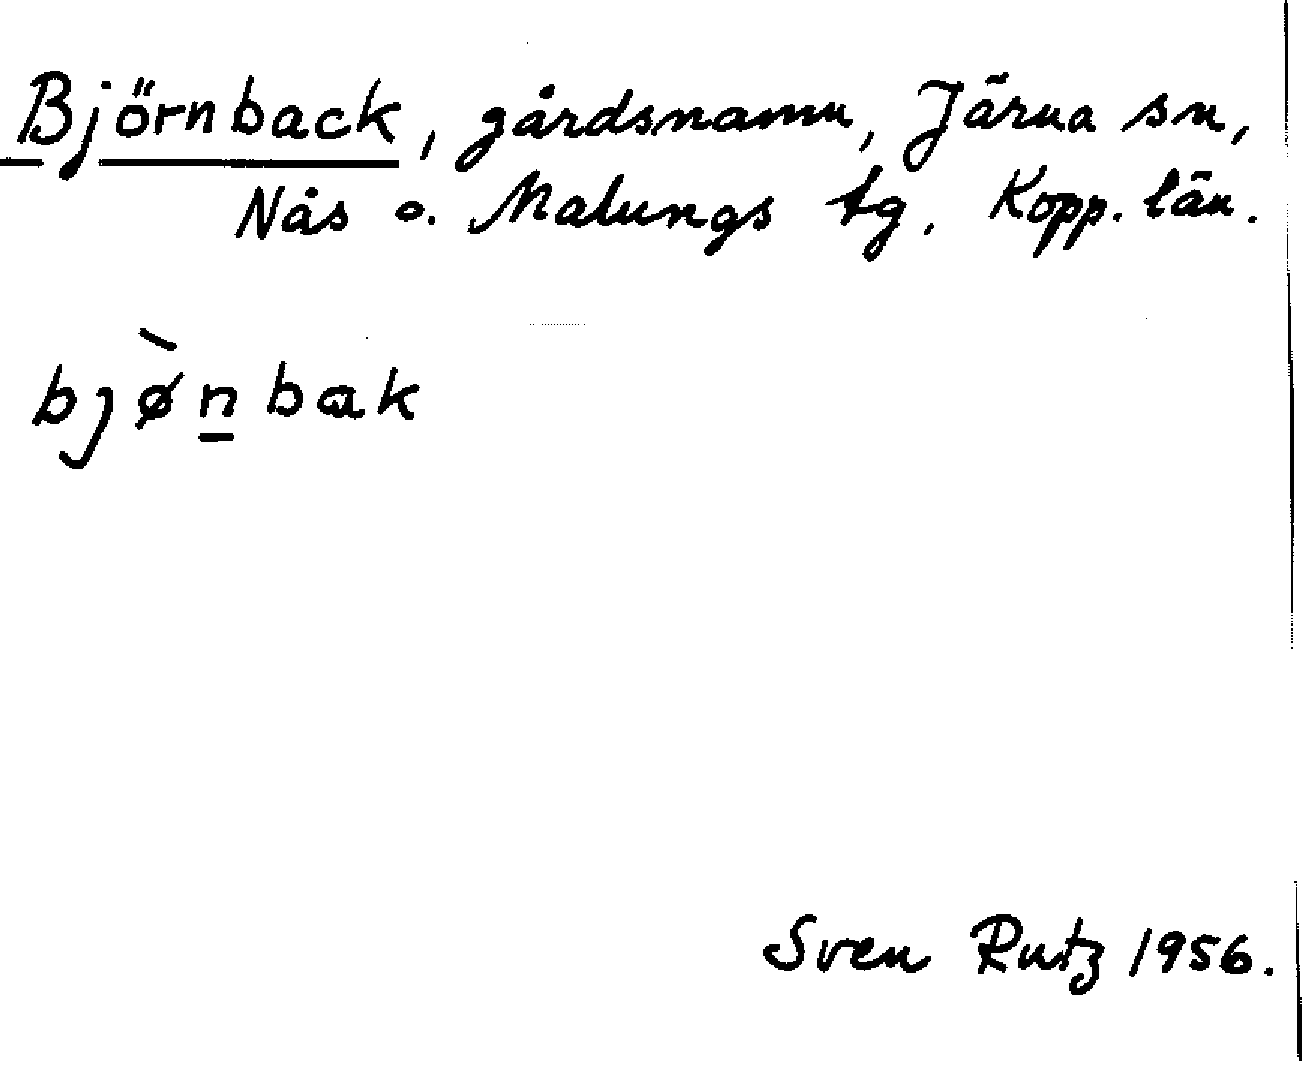 Björnback, gårdsnamn, Järna sn,
Nås o. Malungs tg. Kopp. län.
bjø̀n̲bak
Sven Rutz 1956.